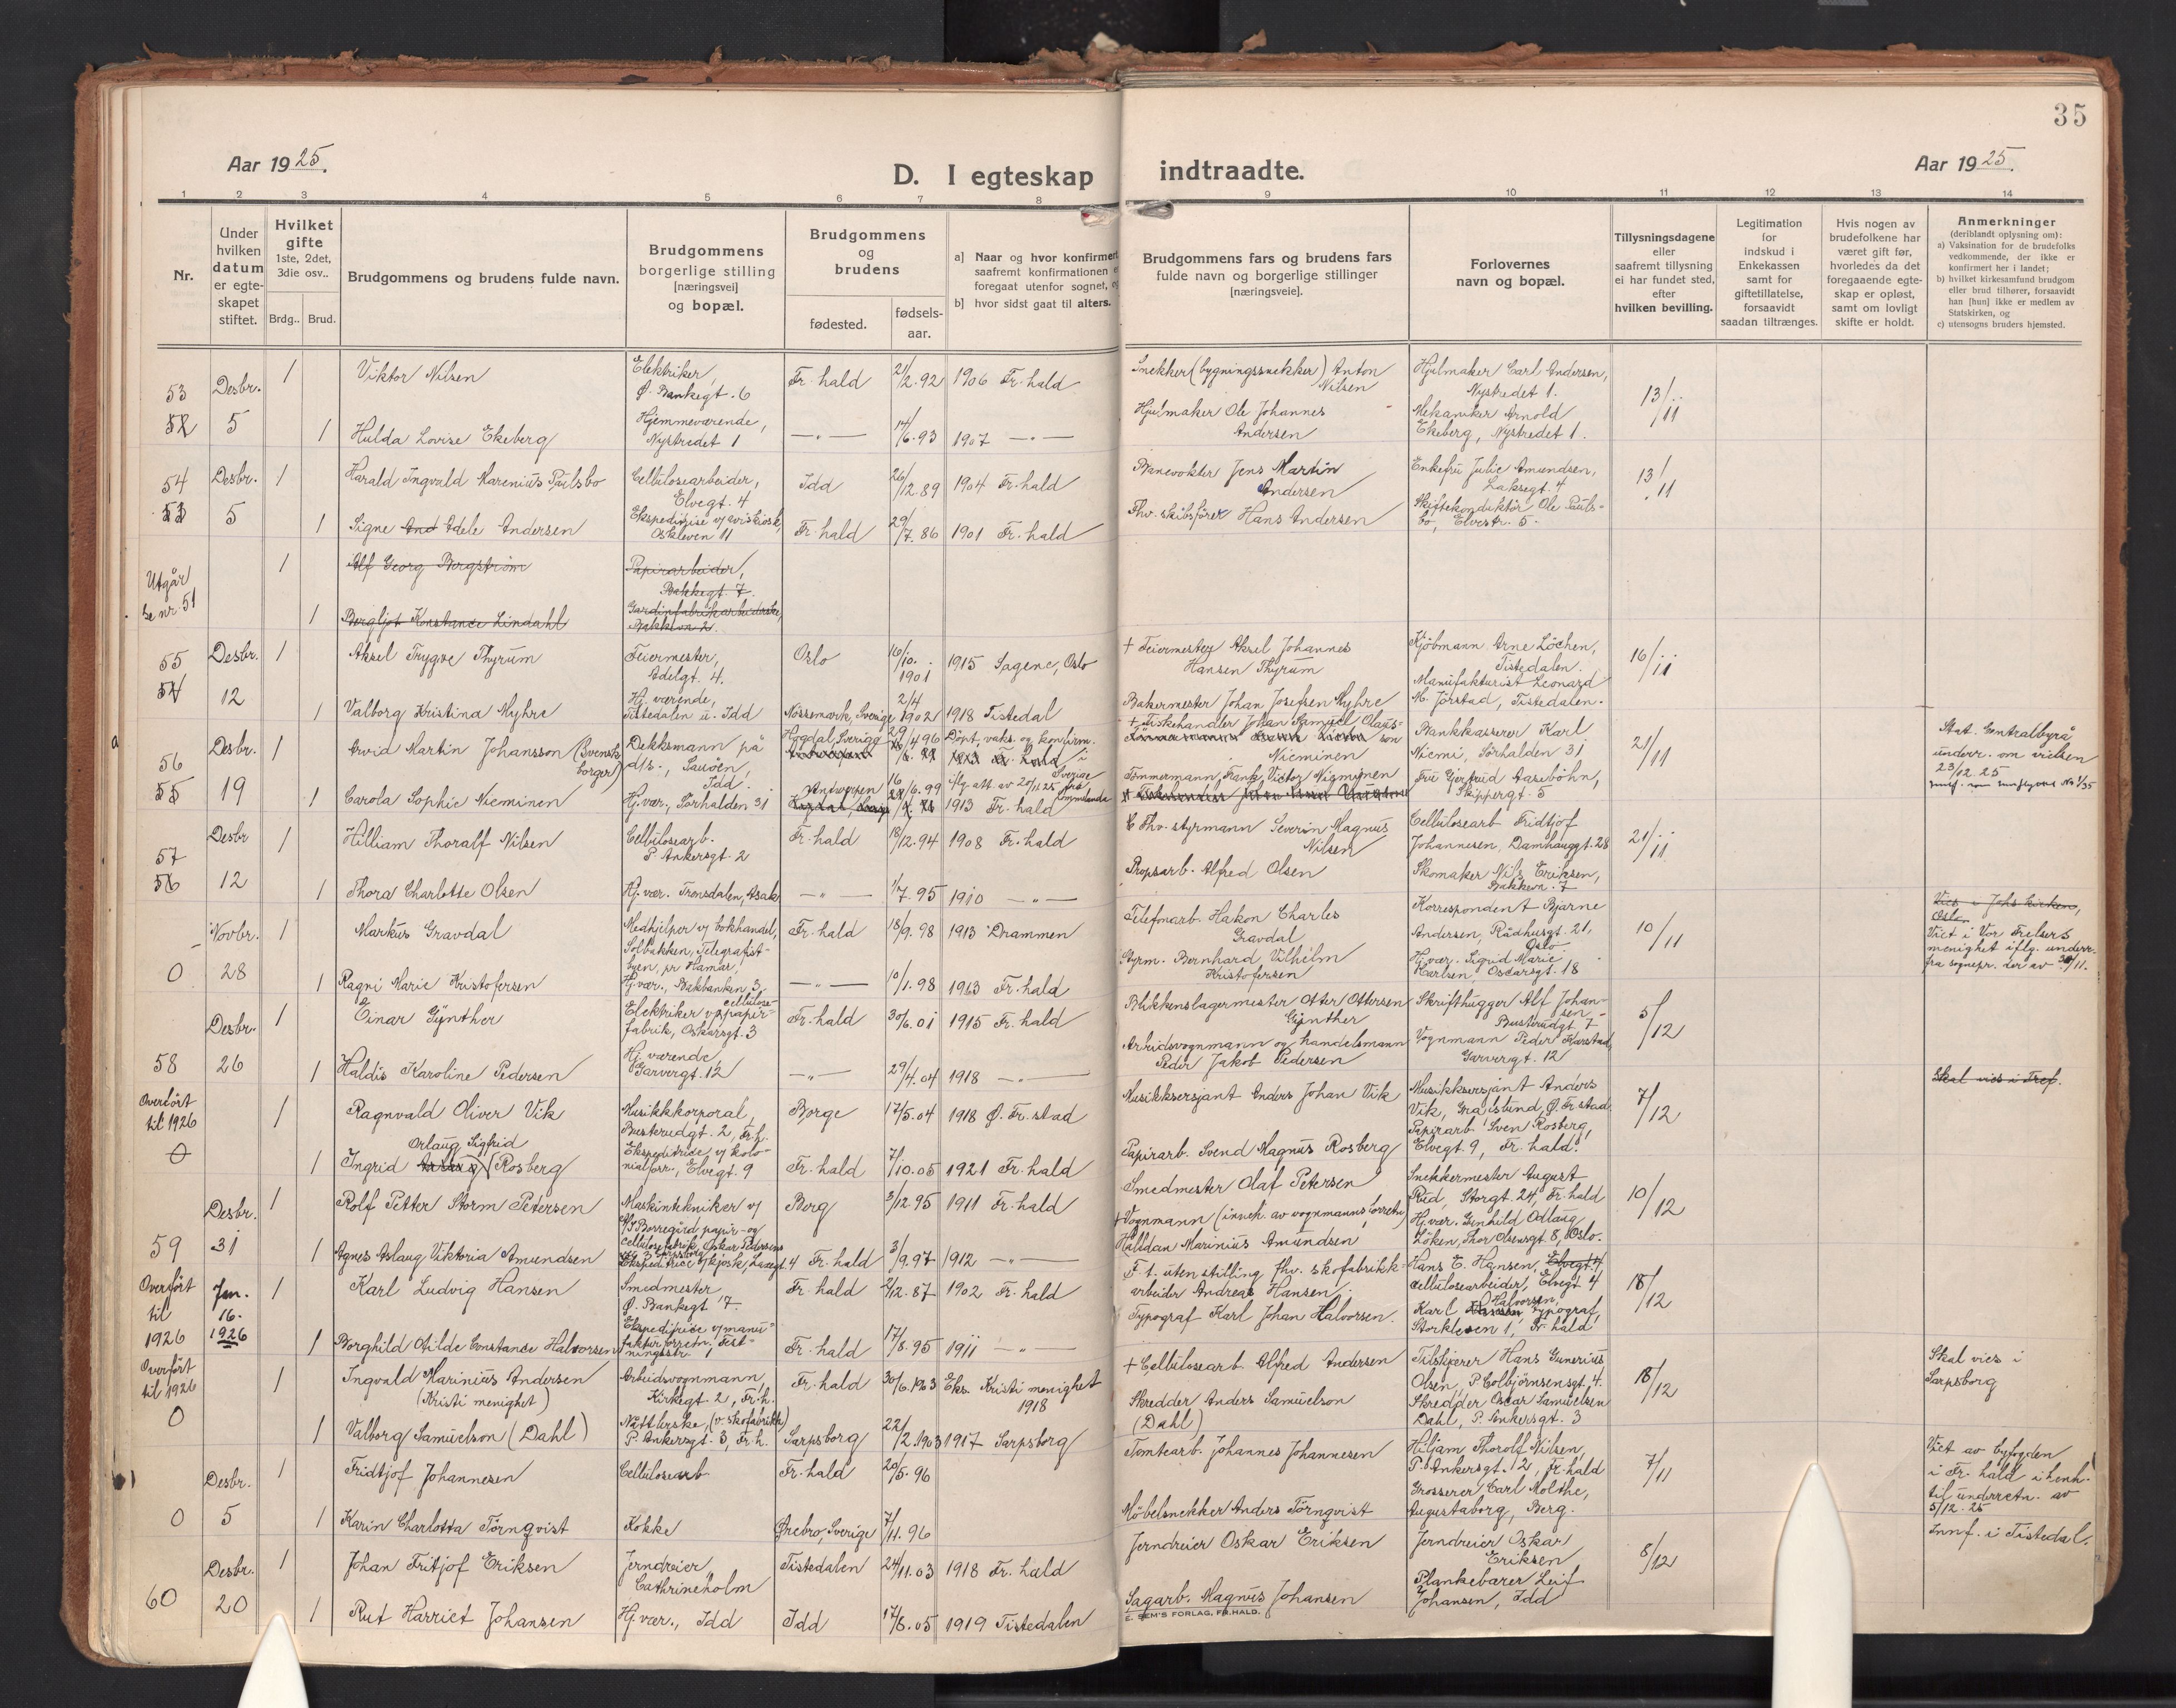 35
Aar 1925.
D. I egteskap indtraadte.
Aar 1925.
1 2 3 4 5 6 7 8 9 10 11 12 13 14
Nr.
Under hvilken datum er egteskapet stiftet.
Hvilket gifte
1ste, 2det, 3die osv..
Brdg.. Brud.
Brudgommens og brudens fulde navn.
Brudgommens borgerlige stilling [næringsvei] og bopæl.
Brudgommens og brudens
fødested.
fødsels-aar.
a] Naar og hvor konfirmert
saafremt konfirmationen
foregaat utenfor sognet,
b] hvor sidst gaat til alters.
Brudgommens fars og brudens fars
fulde navn og borgerlige stillinger
[næringsveie].
Forlovernes
navn og bopæl.
Tillysningsdagene
eller
saafremt tillysning
ei har fundet sted,
efter
hvilken bevilling.
Legitimation
for
indskud i
Enkekassen
samt for
giftetillatelse,
forsaavidt
saadan tiltrænges.
Hvis nogen av
brudefolkene har
været gift før,
hvorledes da det
foregaaende egte-
skap er opløst,
samt om lovligt
skifte er holdt.
Anmerkninger
(deriblandt oplysning om):
a) Vaksination for de brudefolks
vedkommende, der ikke er
konfirmert her i landet;
b) hvilket kirkesamfund brudgom
eller brud tilhører, forsaavidt
han [hun] ikke er medlem av
Statskirken, og
c) utensogns bruders hjemsted.
53 Desbr. 1 Viktor Nilsen Elektriker, Ø. Bankegt. 6 Fr.hald 21/2.92 1906 Fr.hald Snekker (bygningssnekker) Anton Nilsen Hjulmaker Carl Andersen, Nystredet 1. 13/11
52 5 1 Hulda Lovise Ekeberg Hjemmeværende, Nystredet 1 —"— 14/6.93 1907 —"— Hjulmaker Ole Johannes Andersen Mekaniker Arnold Ekeberg, Nystredet 1.
54 Desbr. 1 Harald Ingvald Marenius Paulsbo Cellulosearbeider, Elvegt. 4 Idd 26/12.89 1904 Fr.hald Banevokter Jens Martin Andersen Enkefru Julie Amundsen, Laksegt. 4 13/11
53 5 1 Signe And Adele Andersen Ekspeditrise v/ aviskiosk, Oskleven 11 Fr.hald 29/7.86 1901 Fr.hald Fhv. skibsfører Hans Andersen Skiftekonduktør Ole Paulsbo, Elvestr. 5
Utgår se nr. 51 1 Alf Georg Bergstrøm Papirarbeider, Bakkegt. 7.
1 Bergljot Konstance Lindahl Gardinfabrikarbeiderske, Bakkevn 2.
55 Desbr. 1 Aksel Trygve Thyrum Feiermester, Adelgt. 4. Oslo 10/10. 1901 1915 Sagene, Oslo + Feiermester Aksel Johannes Hansen Thyrum Kjøbmann Arne Løchen, Tistedalen. 16/11
54 12 1 Valborg Kristina Myhre Hj. værende, Tistedalen u. Idd Nössemark, Sverige 2/4 1902 1918 Tistedal Bakermester Johan Josefsen Myhre Manufakturist Leonard M. Jørstad, Tistedalen.
56 Desbr. 1 Arvid Martin Johansson (Svensk borger) Dekksmann på d/s , Sauøen, Idd. Hogdal, Sverige 29/4 96 Døpt, vaks. og konfirm. i Sverige iflg. att. av 20/11 25 + Fiskehandler Johan Samuel Olausson Bankkasserer Karl Niemi, Sørhalden 31 21/11 Stat. Sentralbyrå underr. om vielsen 23/12 25
55 19 1 Carola Sophie Nieminen Hj. vær., Sørhalden 31 Antwerpen 16/6.99 1913 Fr.hald Tømmermann, Frank Victor Nieminen Fru Gjertrud Aasebøhn, Skippergt. 5
57 Desbr 1 Hilliam Thoralf Nilsen Cellulosearb. P. Ankersgt. 2 Fr.hald 18/12.94 1908 Fr.hald Fhv. styrmann Severin Magnus Nilsen Cellulosearb Fridtjof Johannesen, Damhauggt. 28 21/11
56 12 1 Thora Charlotte Olsen Hj. vær. Tronsdalen, Asak —"— 1/7.95 1910 —"— Propsarb. Alfred Olsen Skomaker Nils Eriksen, Bakkevn. 7
Novbr. 1 Markus Gravdal Medhjelper v/ bokhandel, Solbakken, Telegrafistbyen, pr Hamar Fr.hald 18/9.98 1913 Drammen Telefonarb. Hakon Charles Gravdal Korrespondent Bjarne Andersen, Rådhusgt. 21, Oslo 10/11 Vies i Johs kirken, Oslo. Viet i Vor Frelsers menighet iflg. underr. fra sognepr. der av 30/11.
0 28 1 Ragni Marie Kristofersen Hj. vær., Bakbanken 3. —"— 10/1.98 1913 Fr.hald Styrm. Bernhard Vilhelm Kristofersen Hj. vær. Sigrid Marie Karlsen, Oscarsgt. 18
Desbr. 1 Einar Gynther Elektriker v/ cellulose-papirfabrik, Oskarsgt. 3 Fr.hald 30/6.01 1915 Fr.hald Blikkenslagermester Otter Ottersen Gynther Skrifthugger Alf Johansen Busterudgt. 7 5/12
58 26 1 Haldis Karoline Pedersen Hj. værende, Garvergt. 12 —"— 29/4.04 1918 —"— Arbeidsvognmann og handelsmann Peder Jakob Pedersen Vognmann Peder Karstad, Garvergt. 12
Overført til 1926 1 Ragnvald Oliver Vik Musikkkorporal, Busterudgt. 2, Fr.h. Borge 17/5.04 1918 Ø. Fr.stad Musikksersjant Anders Johan Vik Musikksersjant Anders Vik, Gralstund, Ø. Fr.stad 7/12 Skal vies i Tref.
0 1 Ingrid Aslaug Orlaug Sigfrid (Rosberg Ekspeditrise v/ kolonialforr., Elvegt. 9 Fr.hald 7/10.05 1921 Fr.hald Papirarb. Svend Magnus Rosberg Papirarb Sven Rosberg, Elvegt. 9, Fr.hald.
Desbr. 1 Rolf Petter Storm Petersen Maskintekniker v/ A/S Borregård papir- og cellulosefabrik, Oskar Pedersens gt 3 Sarpsborg Berg 3/12.95 1911 Fr.hald Smedmester Olaf Petersen Snekkermester August Rud, Storgt. 24, Fr.hald 10/12
59 31 1 Agnes Aslaug Viktoria Amundsen Ekspeditrice v/ kjosk, Laksegt. 4 Fr.hald 3/9.97 1912 —"— + Vognmann (inneh. av vognmannsforretn) Halldan Marinius Amundsen Hj. vær. Gunhild Odlaug Løken, Thor Olsensgt. 8, Oslo.
Overført til 1926 Jan. 16. 1926 1 Karl Ludvig Hansen Smedmester, Ø. Bankegt 7. Fr.hald 2/12.87 1902 Fr.hald F t. uten stilling fhv. skofabrikkarbeider Andreas Hansen. Hans E. Hansen, Elvegt. 4, cellulosearbeider, Elvegt 4 18/12
1 Borghild Otilde Constance Halvorsen Ekspeditrice v/ manufakturforretn. Festningsstr 1 Fr.hald 17/8.95 1911 —"— Typograf Karl Johan Halvorsen. Karl Hansen Halvorsen, typograf, Storkleven 1, Fr.hald
Overført til 1926 1 Ingvald Marinius Andersen (Kristi menighet) Arbeidsvognmann, Kirkegt. 2, Fr.h. Fr.hald 30/6.1903 Eks. Kristi menighet 1918 + Cellulosearb. Alfred Andersen Tilskjærer Hans Gunerius Olsen, P. Colbjørnsensgt. 4. 18/12 Skal vies i Sarpsborg
0 1 Valborg Samuelson (Dahl) Nåtlerske, (v. skofabrikk) P. Ankersgt. 3, Fr.h. Sarpsborg 22/2.1903 1917 Sarpsborg Skredder Anders Samuelson (Dahl) Skredder Oscar Samuelsen Dahl, P. Ankersgt. 3
Desbr. 1 Fridtjof Johannesen Cellulosearb Fr.hald 20/5.96 Tomtearb. Johannes Johannesen Hiljam Thorolf Nilsen, P. Ankersgt. 2, Fr.hald 7/11 Viet av byfogden i Fr.hald i henh. til underretn. av 5/12.25
0 5 1 Karin Charlotta Törnqvist Kokke Ørebro, Sverige 7/11.96 Møbelsnekker Anders Törnqvist Grosserer Carl Molthe, Augustaborg, Berg.
Desbr. 1 Johan Fritjof Eriksen Jerndreier, Cathrineholm Tistedalen 24/11.03 1918 Fr.hald Jerndreier Oskar Eriksen Jerndreier Oskar Eriksen 8/12 Innf. i Tistedal.
60 20 1 Rut Harriet Johansen Hj. vær., Idd Idd 17/8.05 1919 Tistedalen Sagarb. Magnus Johansen Plankebærer Leif Johansen, Idd
E. SEM'S FORLAG, FR.HALD.